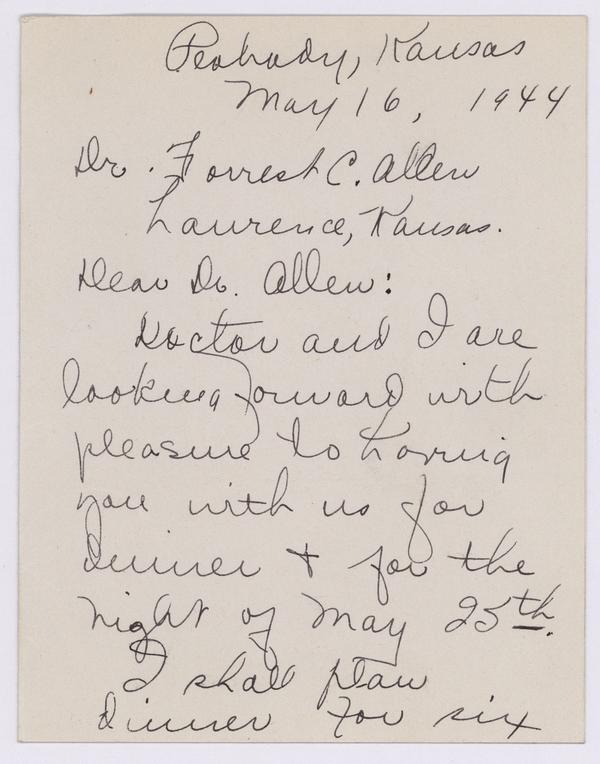 Peabody, Kansas
May 16, 1944
Dr. Forrest C. Allen
Lawrence, Kansas.
Dear Dr. Allen:
Doctor and I are
looking forward with
pleasure to having
you with us for
dinner + for the
night of May 25th.
I shall plan
dinner for six